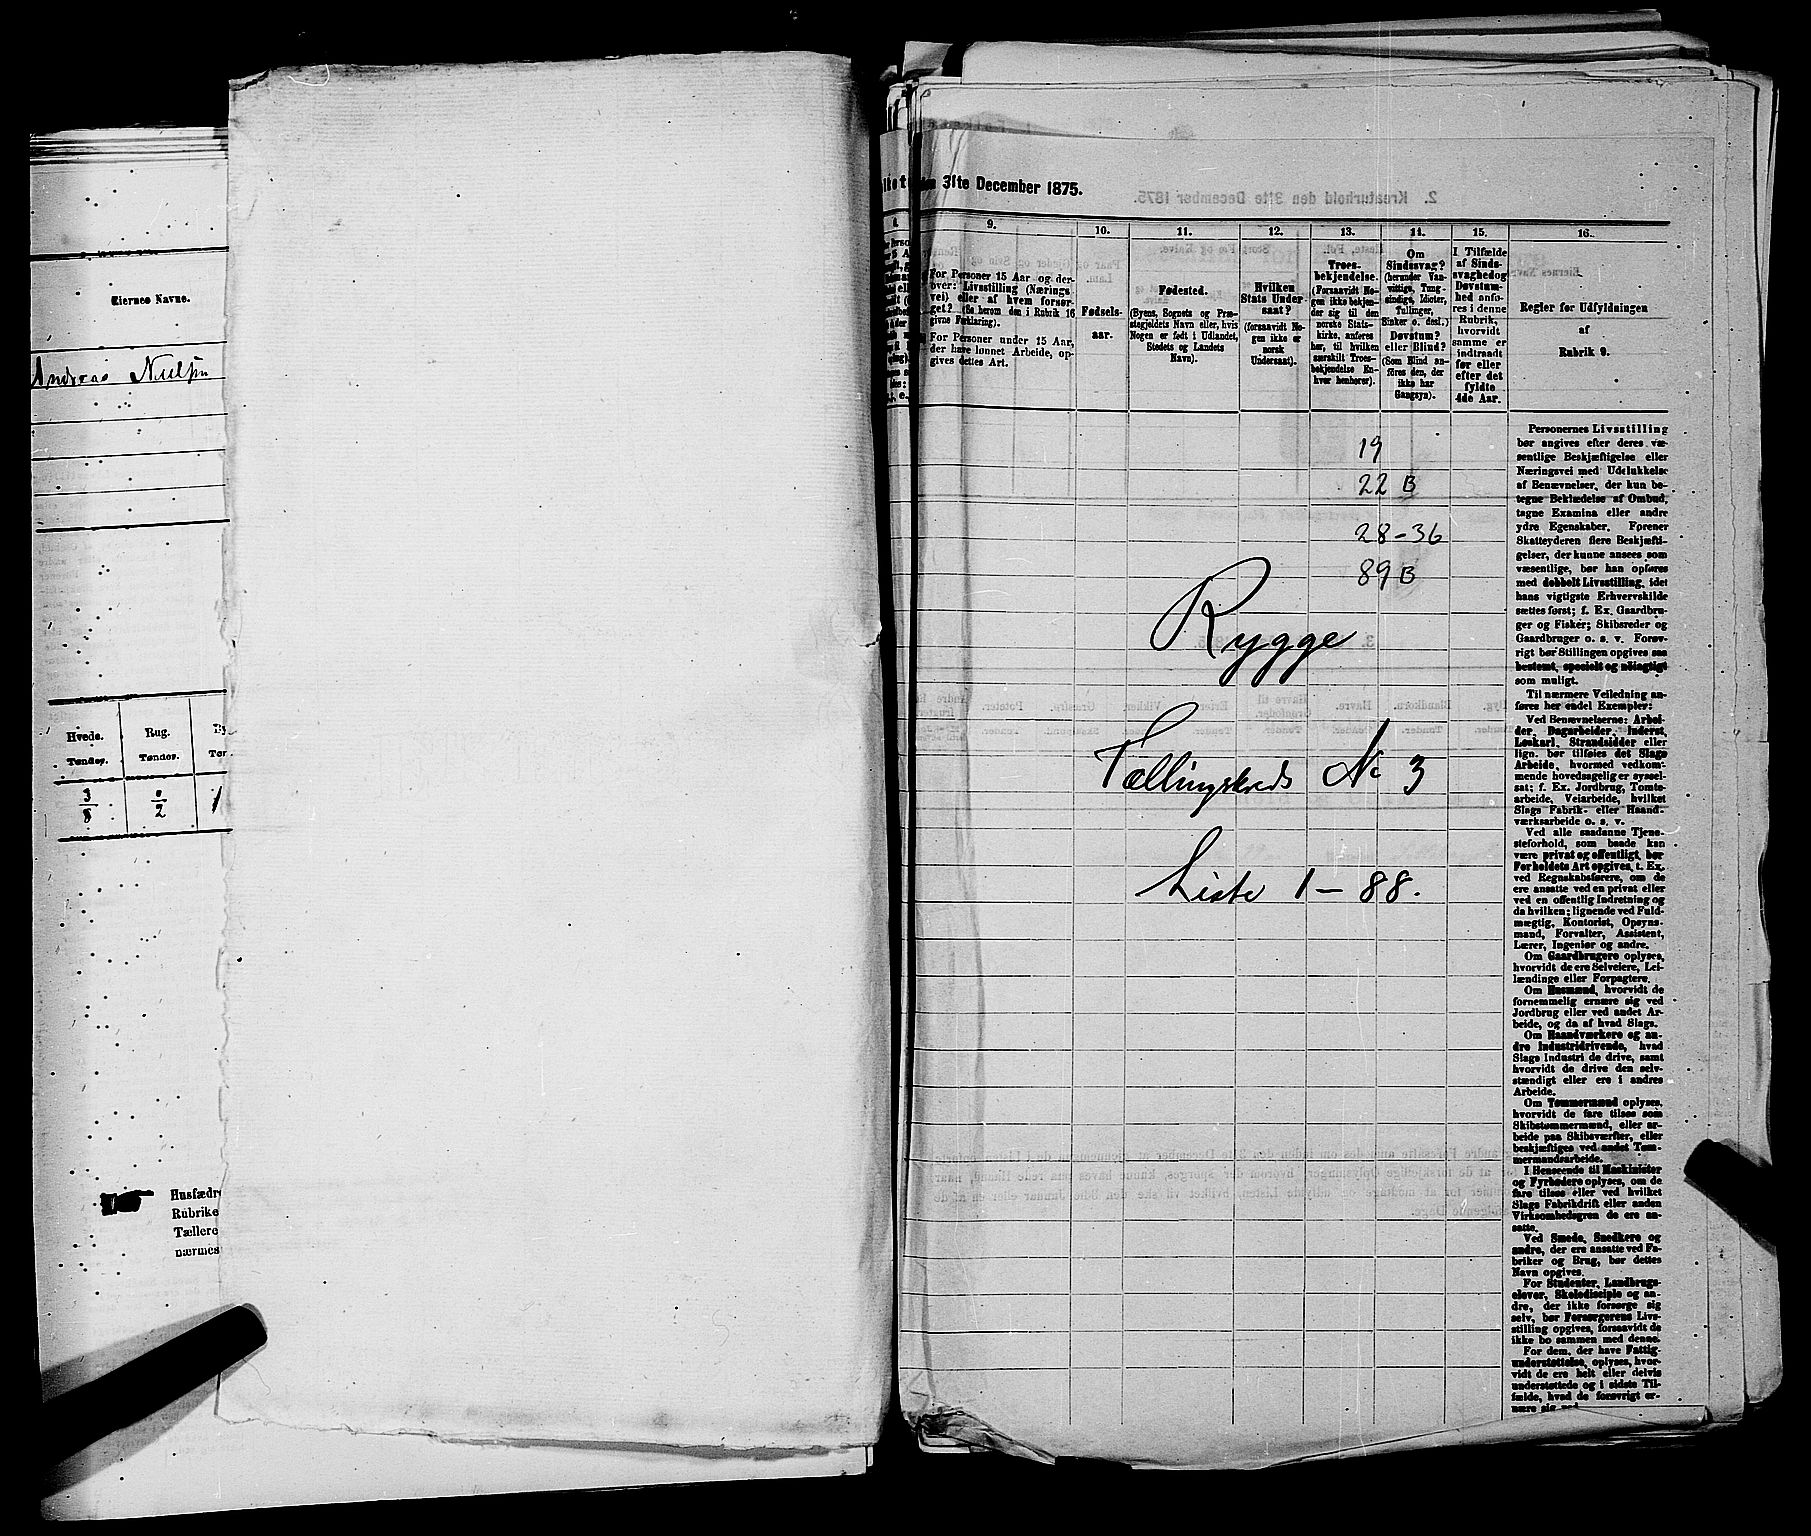 Eiernes Navne.
Andreas
Hvede.
Rug.
Tønder.
Tønder.
3/8
Husfædre
Rubrike
Tællere
nærmes
den 31te December 1875.
9.
10.
11.
12.
13.
14.
15.
16.
For Personer 15 Aar og der-
over: Livsstilling (Nærings-
vei) eller af hvem forsør-
get? (Se herom den i Rubrik 16
givne Forklaring).
For Personer under 15 Aar,
der have lønnet Arbeide, op-
gives dettes Art.
Fødsels-
aar.
Fødested.
(Byens, Sognets og Præ-
stegjeldets Navn eller, hvis
Nogen er født i Udlandet,
Stedets og Landets
Navn).
Hvilken
Stats Under-
saat?
(forsaavidt No-
gen ikke er
norsk
Undersaat).
Troes-
bekjendelse.
(Forsaavidt No-
gen ikke bekjen-
der sig til den
norske Stats-
kirke, anføres
her, til hvilken
særskilt Troes-
bekjendelse En-
hver henhører).
Om
Sindssvag?
(herunder Van-
vittige, Tung-
sindige, Idioter,
Tullinger,
Sinker o. desl.)
Døvstum?
eller Blind?
(Som Blind an-
føres den, der
ikke har
Gangsyn).
I Tilfælde
af Sinds-
svaghed og
Døvstum-
hed anfø-
res i denne
Rubrik,
hvorvidt
samme er
indtraadt
før eller
efter det
fyldte
4de Aar.
Regler for Udfyldningen
af
Rubrik 9.
19
22 B
28-36
89 B
Rygge
Tællingskreds No 3
Liste 1-88.
Personernes Livsstilling
bør angives efter deres væ-
sentlige Beskjæftigelse eller
Næringsvei med Udelukkelse
af Benævnelser, der kun be-
tegne Beklædelse af Ombud,
tagne Examina eller andre
ydre Egenskaber. Forener
Skatteyderen flere Beskjæfti-
gelser, der kunne ansees som
væsentlige, bør han opføres
med dobbelt Livsstilling, idet
hans vigtigste Erhvervskilde
sættes først; f. Ex. Gaardbru-
ger og Fisker; Skibsreder og
Gaardbruger o. s. v. Forøv-
rigt bør Stillingen opgives saa
bestemt, specielt og nøiagtigt
som muligt.
Til nærmere Veiledning an-
føres her endel Exempler:
Ved Benævnelserne: Arbei-
der, Dagarbeider, Inderst,
Løskarl, Strandsidder eller
lign. bør tilføies det Slags
Arbeide, hvormed vedkom-
mende hovedsagelig er syssel-
sat; f. Ex. Jordbrug, Tomte-
arbeide, Veiarbeide, hvilket
Slags Fabrik- eller Haand-
værksarbeide o. s. v.
Ved alle saadanne Tjene-
steforhold, som baade kan
være privat og offentligt, bør
Forholdets Art opgives, t. Ex.
ved Regnskabsførere, om de
ere ansatte ved en privat eller
ved en offentlig Indretning og
da hvilken; lignende ved Fuld-
mægtig, Kontorist, Opsyns-
mand, Forvalter, Assistent,
Lærer, Ingeniør og andre.
Om Gaardbrugere oplyses,
hvorvidt de ere Selveiere, Lei-
lændinge eller Forpagtere.
Om Husmænd, hvorvidt de
fornemmelig ernære sig ved
Jordbrug eller ved andet Ar-
beide, og da af hvad Slags.
Om Haandværkere og an-
dre Industridrivende, hvad
Slags Industri de drive, samt
hvorvidt de drive den selv-
stændigt eller ere i andres
Arbeide.
Om Tømmermænd oplyses,
hvorvidt de fare tilsøs som
Skibstømmermænd, eller ar-
beide paa Skibsværfter, eller
beskjæftiges ved andet Tøm-
mermandsarbeide.
I Henseende til Maskinister
og Fyrbødere oplyses, om de
fare tilsøs eller ved hvilket
Slags Fabrikdrift eller anden
Virksomhedsgren de ere an-
satte.
Ved Smede, Snedkere og
andre, der ere ansatte ved Fa-
briker og Brug, bør dettes
Navn opgives.
For Studenter, Landbrugs-
elever, Skoledisciple og an-
dre, der ikke forsørge sig
selv, bør Forsørgerens Livs-
stilling opgives, forsaavidt de
ikke bo sammen med denne.
For dem, der have Fattig-
understøttelse, oplyses, hvor-
vidt de ere helt eller delvis
understøttede og i sidste Til-
fælde, hvad de forøvrigt er-
nære sig ved.